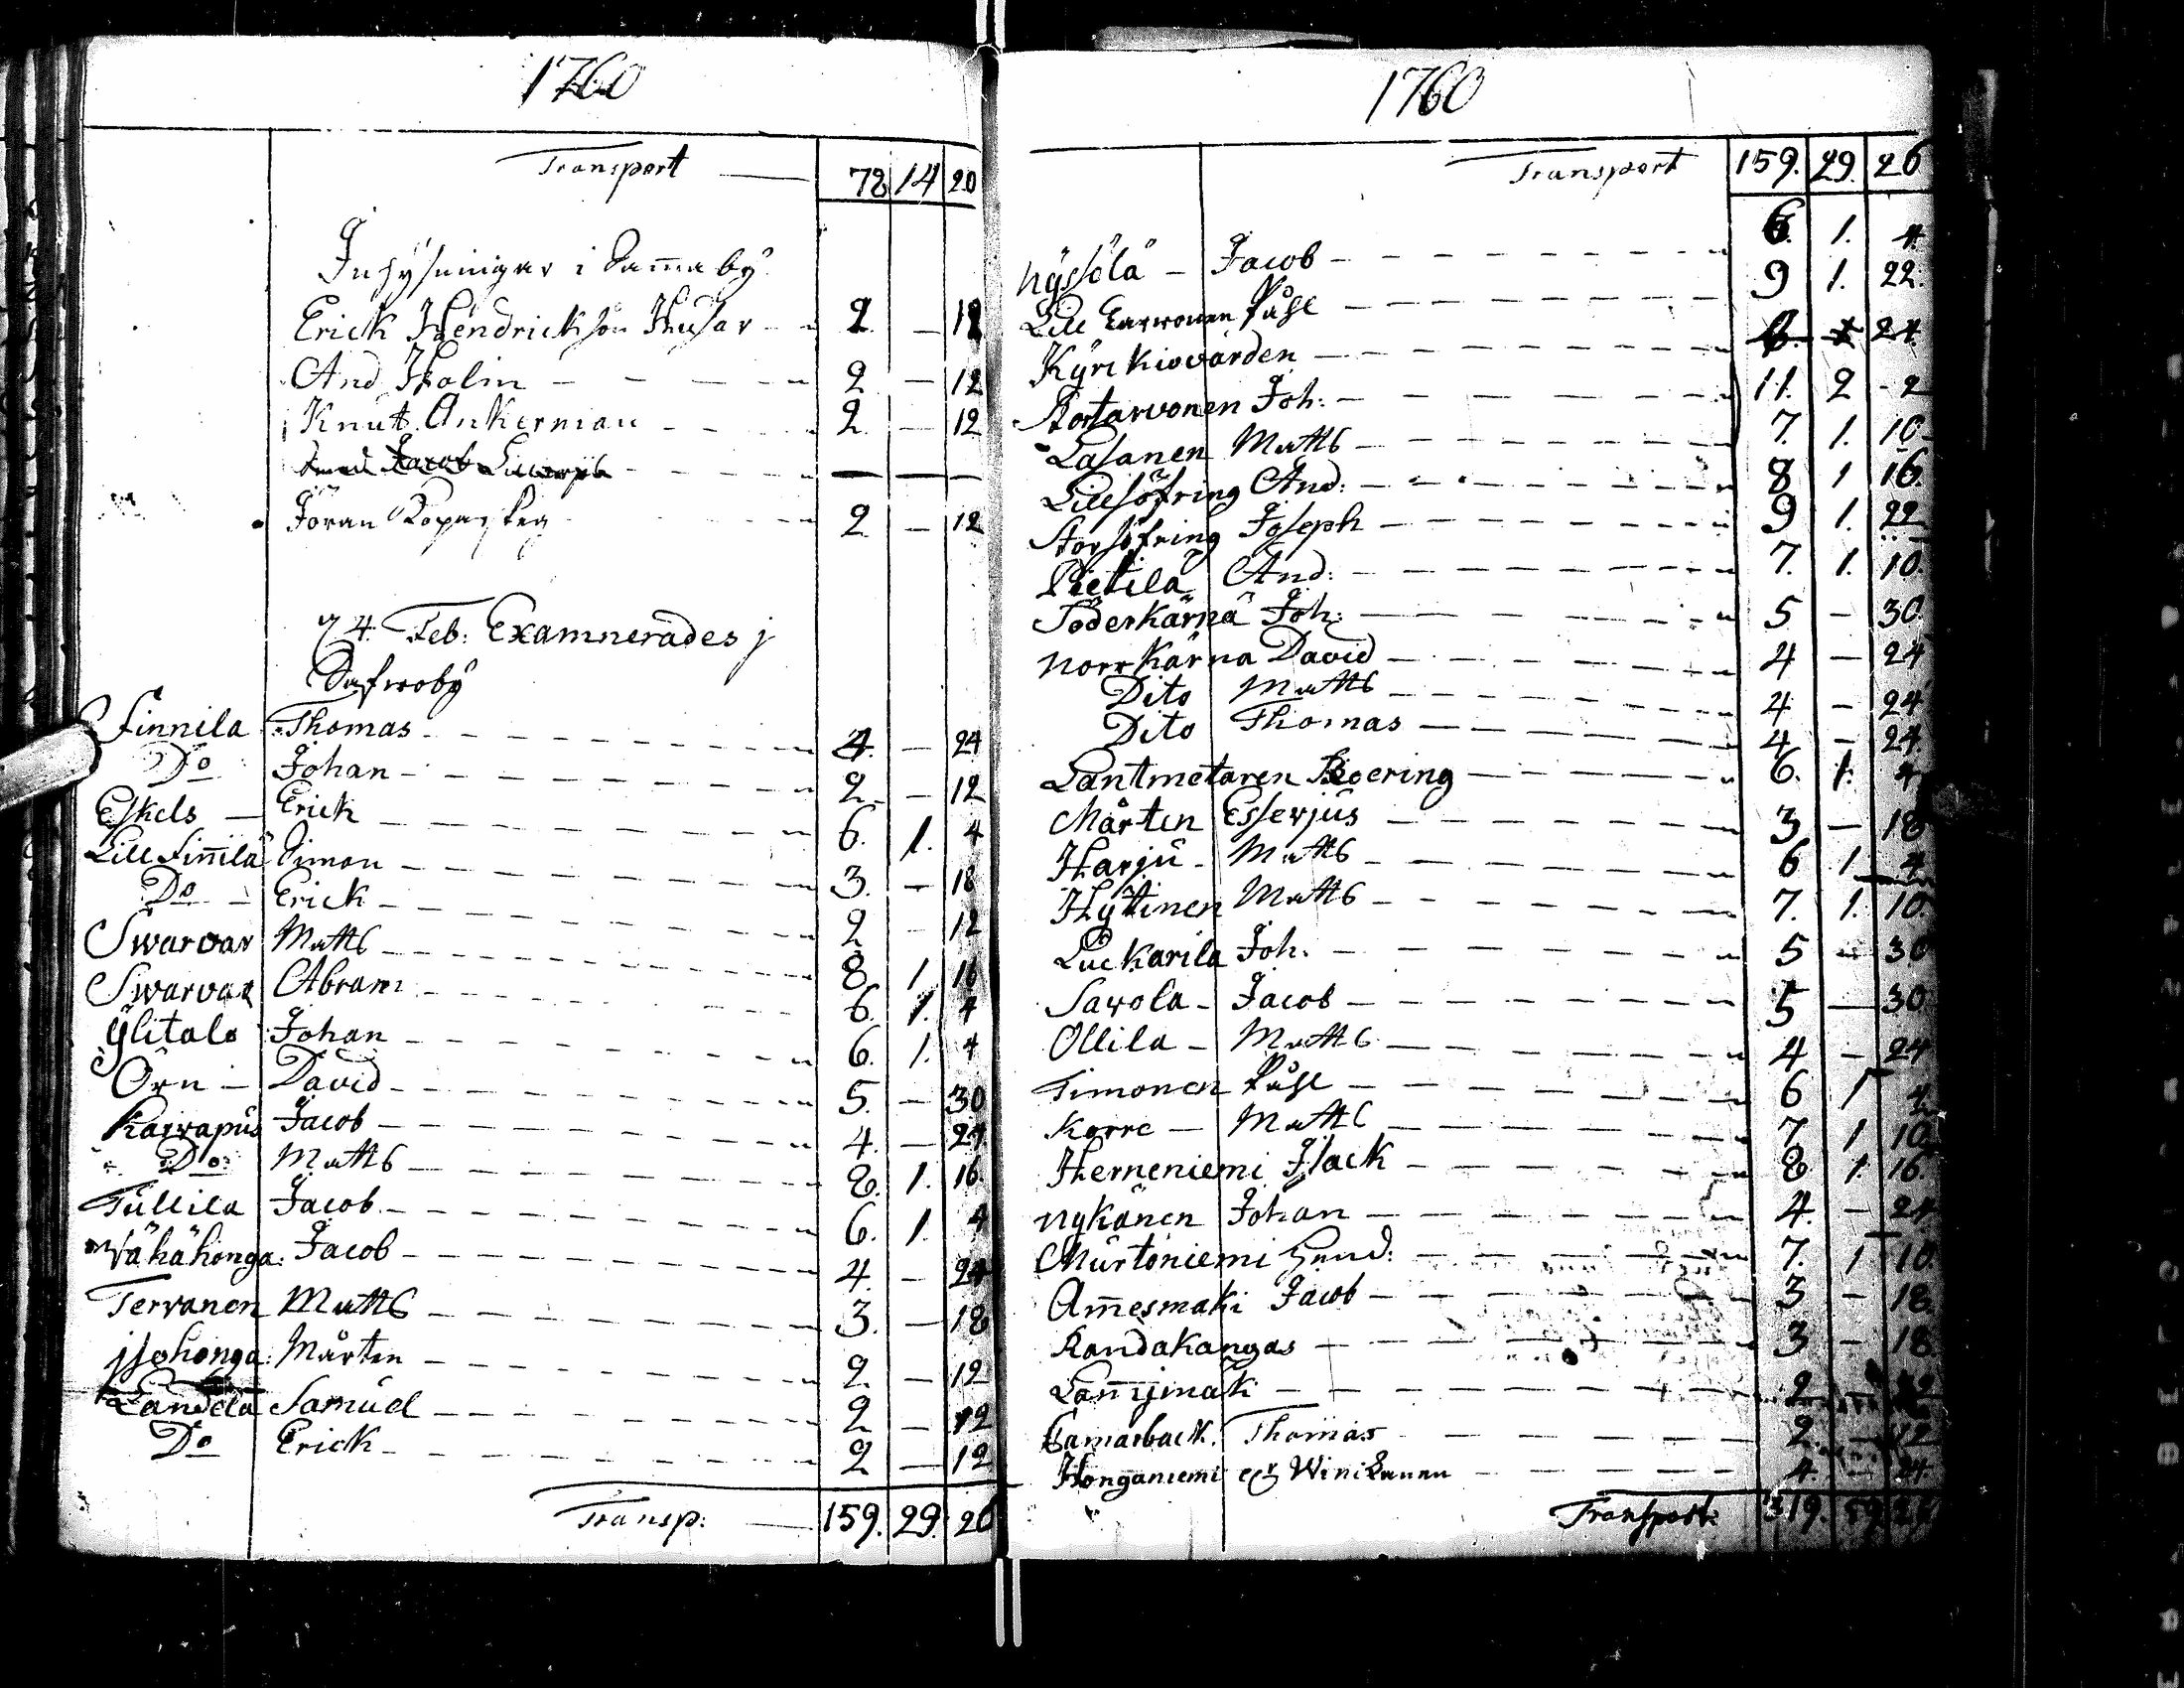 1760
Transport 78 14 20
Inhysningar i Samma by
Erick Hendrickson Husar 2 — 12
And Holm 2 — 12
Knut Ankerman 2 — 12
Jacob — —
Jöran 2 — 12
24 Feb: Examnerades j
Safwoby
Finnila Thomas 4. — 24
Do Johan 2 — 12
Eskels Erick 6. 1. 4
Lill Finnilä Simon 3. — 18
Do Erick 2 — 12
Swarvar Matts 8 1 16
Swarvar Abram 6. 1. 4
Ÿlitalo Johan 6. 1. 4
Örn David 5. — 30
Karvapus Jacob 4. — 24
Do: Matts 8. 1. 16
Tullila Jacob 6. 1. 4
Wähähonga: Jacob 4. — 24
Tervanen Matts 3. — 18
jsohonga: Mårten 2 — 12
Landela Samuel 2 — 12
Do Erick 2 — 12
Transp: 159. 29. 26
1760
Transport 159. 29. 26
Nÿssölä Jacob 6. 1. 4
Lill Tarvonen Påhl 9 1. 22
Kÿrckiovärden 24
Stortarvonen Joh: 11. 2 2
Lasanen Matts 7. 1. 10
Lillsöfring And: 8 1 16.
Storsöfring Joseph 9 1. 22
Pietilä And: 7. 1. 10.
Söderkärnä Joh: 5 — 30.
Norrkärna David 4 — 24
Dito Matts 4 — 24
Dito Thomas 4 — 24.
Lantmetaren Boering 6. 1. 4
Mårten Esserjus 3 — 18
Harju Matts 6 1 4
Hÿtinen Matts 7. 1. 10.
Luckarila Joh: 5 — 30
Savola Jacob 5 — 30
Ollila Matts 4 — 24
Timonen Påhl 6 1 4
Korre Matts 7 1 10
Herneniemi Isack 8 1. 16.
Nykänen Johan 4. — 24
Murtoniemi Hend: 7. 1 10.
Am̄esmaki Jacob 3 — 18.
Randakangas 3 — 18.
Lam̄ijmaki 2 — 12
Camarback. Thomas 2. — 12
Honganiemi 4. — 24
Transport: 319.